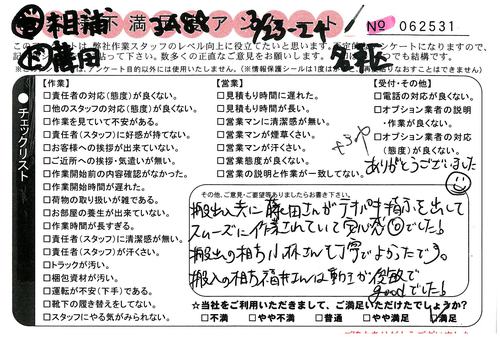 相浦
藤田
3/23-24
名板
不満
アンケート
No 062531
このアンケートは、弊社作業スタッフのレベル向上に役立てたいと思います。
【作業】
□責任者の対応(態度)が良くない。
□他のスタッフの対応(態度)が良くない。
□作業を見ていて不安がある。
□責任者(スタッフ)に好感が持てない。
□お客様への挨拶が出来ていない。
□ご近所への挨拶・気遣いが無い。
□作業開始前の内容確認がなかった。
□作業開始時間が遅れた。
□荷物の取り扱いが雑である。
□お部屋の養生が出来ていない。
□作業時間が長すぎる。
□責任者(スタッフ)に清潔感が無い。
□責任者(スタッフ)が汗くさい。
□トラックが汚い。
□梱包資材が汚い。
□運転が不安(下手)である。
□靴下の履き替えをしてない。
□スタッフにやる気がみられない。
【営業】
□見積もり時間に遅れた。
□見積もり時間が長い。
□営業マンに清潔感が無い。
□営業マンが煙草くさい。
□営業マンが汗くさい。
□営業態度が良くない。
□営業の説明と作業が一致してない。
【受付・その他】
□電話の対応が良くない。
□オプション業者の説明
・作業が良くない。
□オプション業者の対応
(態度)が良くない。
ありがとうございました
チェックリスト
その他、ご意見・ご要望等ありましたらお書き下さい。
搬出入共に藤田さんがテキパキ指示を出して
スムーズに作業されていて安心感◎でした!
搬出の相方小林さんも丁寧でよかったです。
搬入の相方福井さんは動きが俊敏で
goodでした!
☆当社をご利用いただきまして、ご満足いただけたでしょうか?
□不満 □やや不満 □普通 □やや満足 □満足